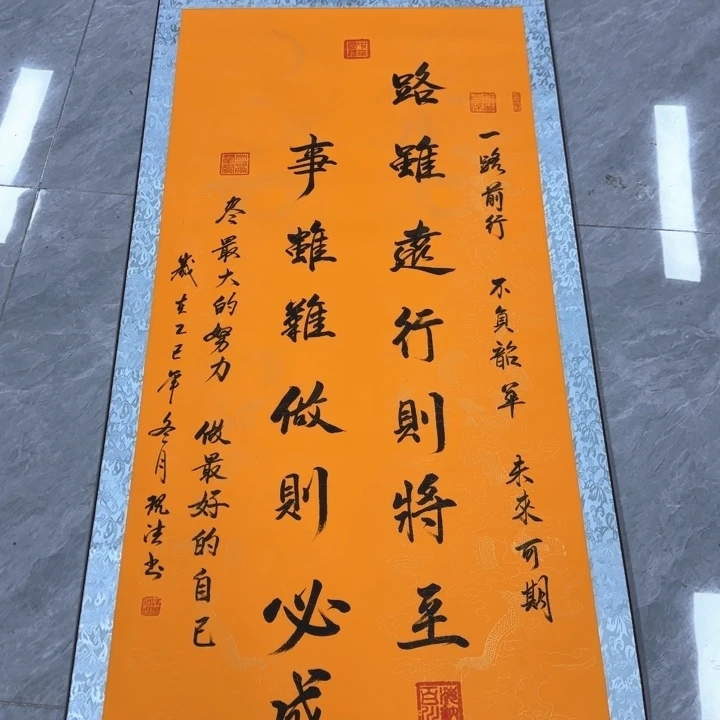 一路前行 不負韶華 未來可期
路雖遠行則將至
事雖難做則必成
尽最大的努力 做最好的自己
歲在乙巳年冬月 书